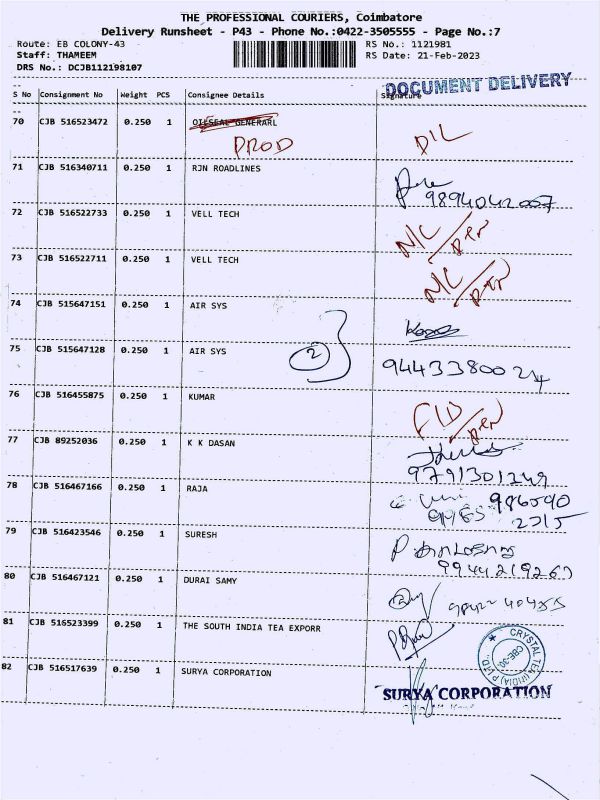 THE PROFESSIONAL COURIERS, Coimbatore
Delivery Runsheet - P43 - Phone No.:0422-3505555 - Page No.:7
Route: EB COLONY-43
RS No.: 1121981
Staff: THAMEEM
RS Date: 21-Feb-2023
DRS No.: DCJB112198107
DOCUMENT DELIVERY
S No Consignment No Weight PCS Consignee Details Signature
70 CJB 516523472 0.250 1 OILSEAL GENERARL
PROD D/L
71 CJB 516340711 0.250 1 RJN ROADLINES
9894042007
72 CJB 516522733 0.250 1 VELL TECH
N/C
73 CJB 516522711 0.250 1 VELL TECH
N/C
74 CJB 515647151 0.250 1 AIR SYS
2
75 CJB 515647128 0.250 1 AIR SYS
9443380024
76 CJB 516455875 0.250 1 KUMAR
77 CJB 89252036 0.250 1 K K DASAN
9791301249
78 CJB 516467166 0.250 1 RAJA
986590
2215
79 CJB 516423546 0.250 1 SURESH
9944219267
80 CJB 516467121 0.250 1 DURAI SAMY
81 CJB 516523399 0.250 1 THE SOUTH INDIA TEA EXPORR
CRYSTAL TEA (INDIA) PVT LTD
CBE-30
82 CJB 516517639 0.250 1 SURYA CORPORATION
SURYA CORPORATION